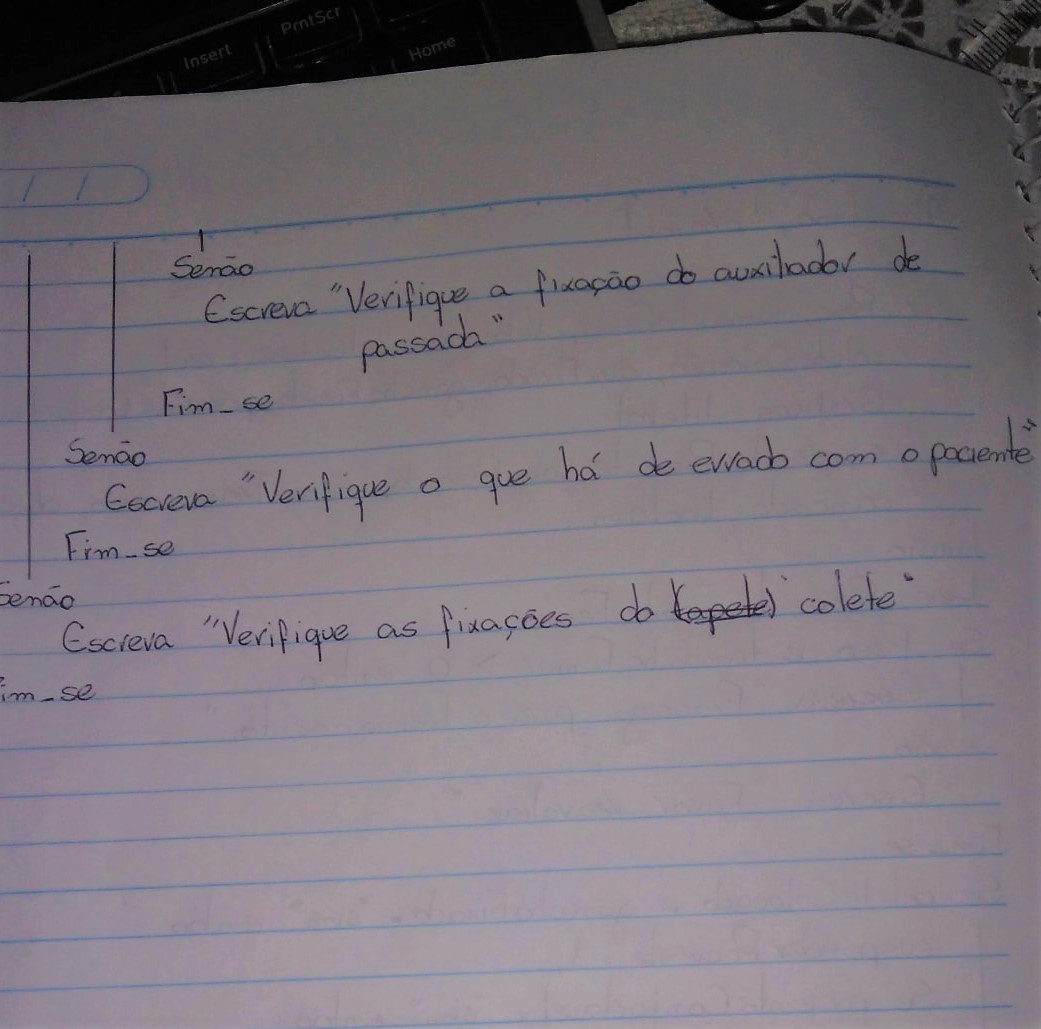 Insert
PrntScr
Home
/ /
Senão
Escreva "Verifique a fixação do auxiliador de
passada"
Fim_se
Senão
Escreva "Verifique o que há de errado com o paciente"
Fim_se
Senão
Escreva "Verifique as fixações do (tapete) colete"
Fim_se